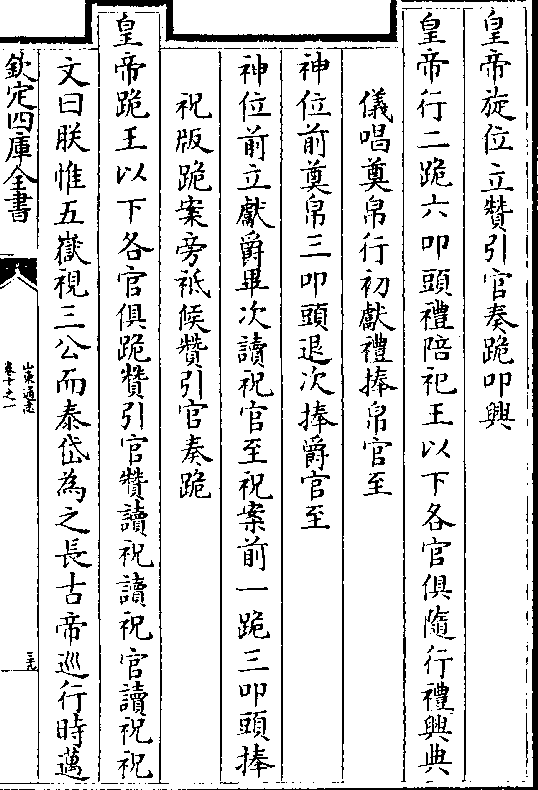 皇帝旋位立贊引官奏跪叩興
皇帝行二跪六叩頭禮陪祀王以下各官俱隨行禮興典
儀唱奠帛行初獻禮捧帛官至
神位前奠帛三叩頭退次捧爵官至
神位前立獻爵畢次讀祝官至祝案前一跪三叩頭捧
祝版跪案旁祗候贊引官奏跪
皇帝跪王以下各官俱跪贊引官贊讀祝讀祝官讀祝祝
文曰朕惟五嶽視三公而泰岱為之長古帝巡行時邁
欽定四庫全書
山東通志
卷十之一